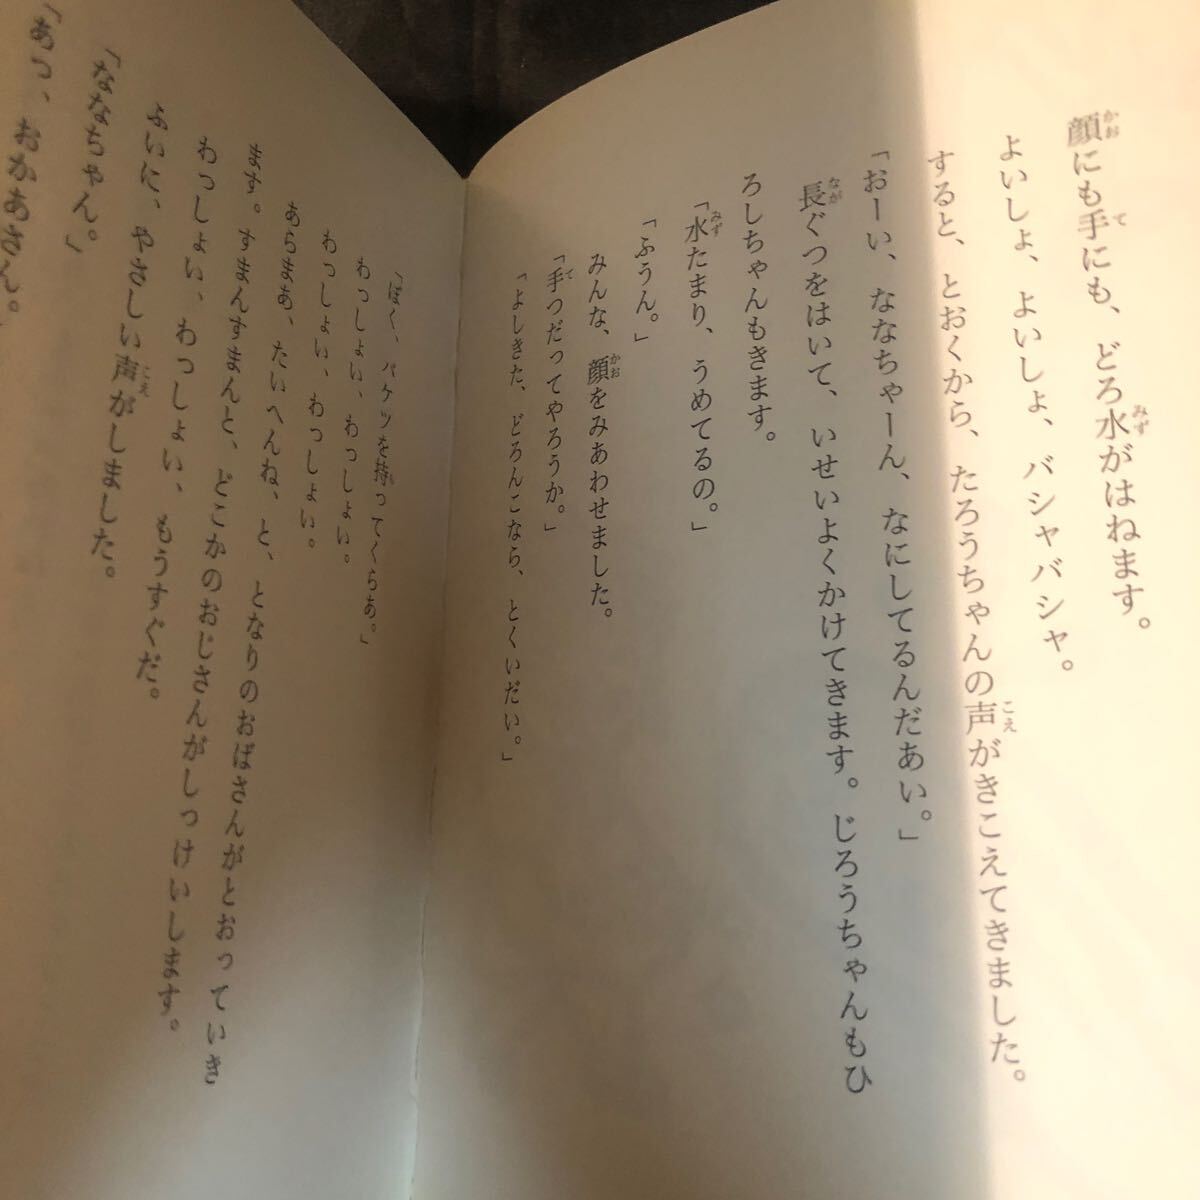 顔にも手にも、どろ水がはねます。
よいしょ、よいしょ、バシャバシャ。
すると、とおくから、たろうちゃんの声がきこえてきました。
「おーい、ななちゃーん、なにしてるんだあい。」
長ぐつをはいて、いせいよくかけてきます。じろうちゃんもひ
ろしちゃんもきます。
「水たまり、うめてるの。」
「ふうん。」
みんな、顔をみあわせました。
「手つだってやろうか。」
「よしきた、どろんこなら、とくいだい。」
「ぼく、バケツを持ってくらあ。」
わっしょい、わっしょい。
わっしょい、わっしょい。
あらまあ、たいへんね、と、となりのおばさんがとおっていき
ます。すまんすまんと、どこかのおじさんがしっけいします。
わっしょい、わっしょい、もうすぐだ。
ふいに、やさしい声がしました。
「ななちゃん。」
「あっ、おかあさん。